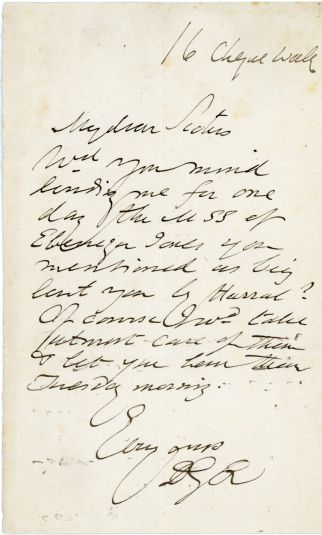 16 Cheyne Walk
My dear Sir
Wd you mind
lending me for one
day the MSS of
Ebenezer Jones you
mentioned as being
lent you by Harral?
Of course I wd take
utmost care of them
& let you have them
Tuesday morning.
Ever yours
DGR